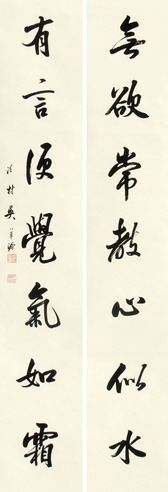 無欲常教心似水
有言便覺氣如霜